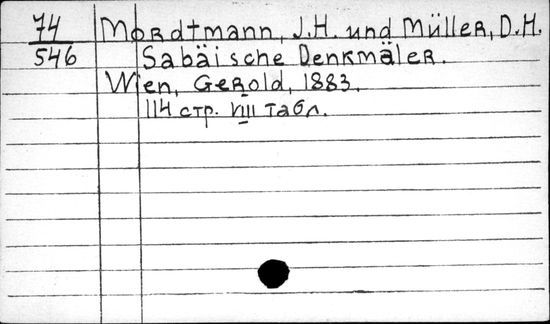 74 Mordtmann, J.H. und Müller, D.H.
546 Sabäische Denkmäler.
Wien, Gerold, 1883.
114 стр. VIII табл.